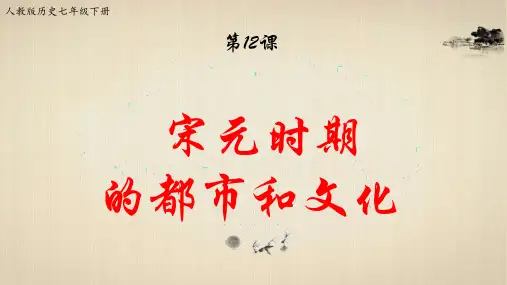 人教版历史七年级下册
第12课
宋元时期
的都市和文化